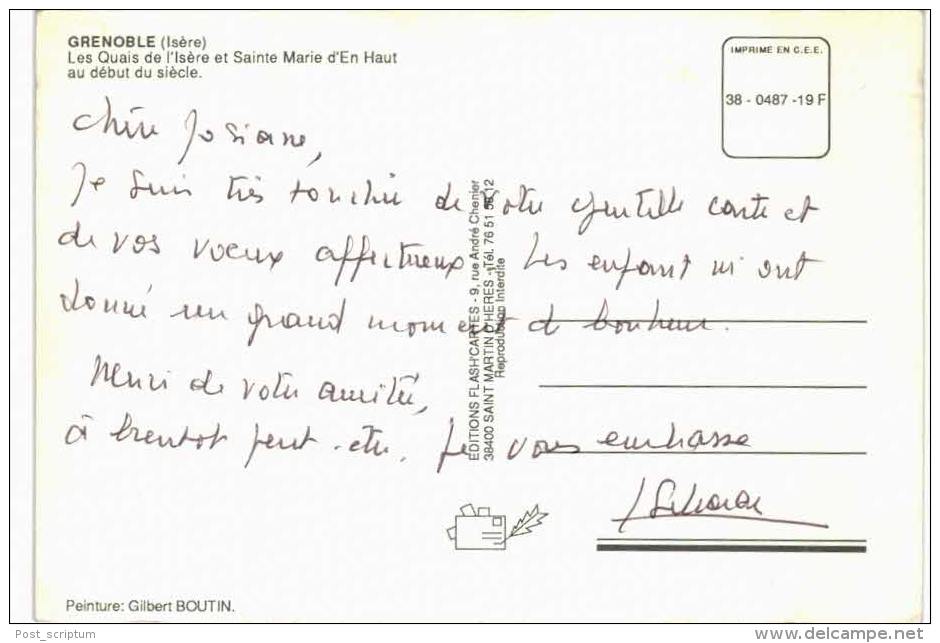 GRENOBLE (Isère)
Les Quais de l'Isère et Sainte Marie d'En Haut
au début du siècle.
IMPRIMÉ EN C.E.E.
38 - 0487 - 19 F
Chère Josiane,
Je suis très touchée de votre gentille carte et
de vos voeux affectueux. Les enfants m'ont
donné un grand moment de bonheur.
Merci de votre amitié,
à bientôt peut-être. Je vous embrasse
EDITIONS FLASH'CARTES - 9, rue André Chenier
38400 SAINT MARTIN D'HERES - Tél. 76 51 58 12
Reproduction Interdite
Peinture: Gilbert BOUTIN.
Post_scriptum
delcampe.net